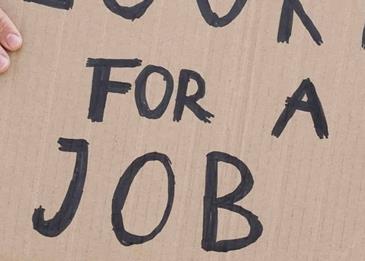 FOR A
JOB